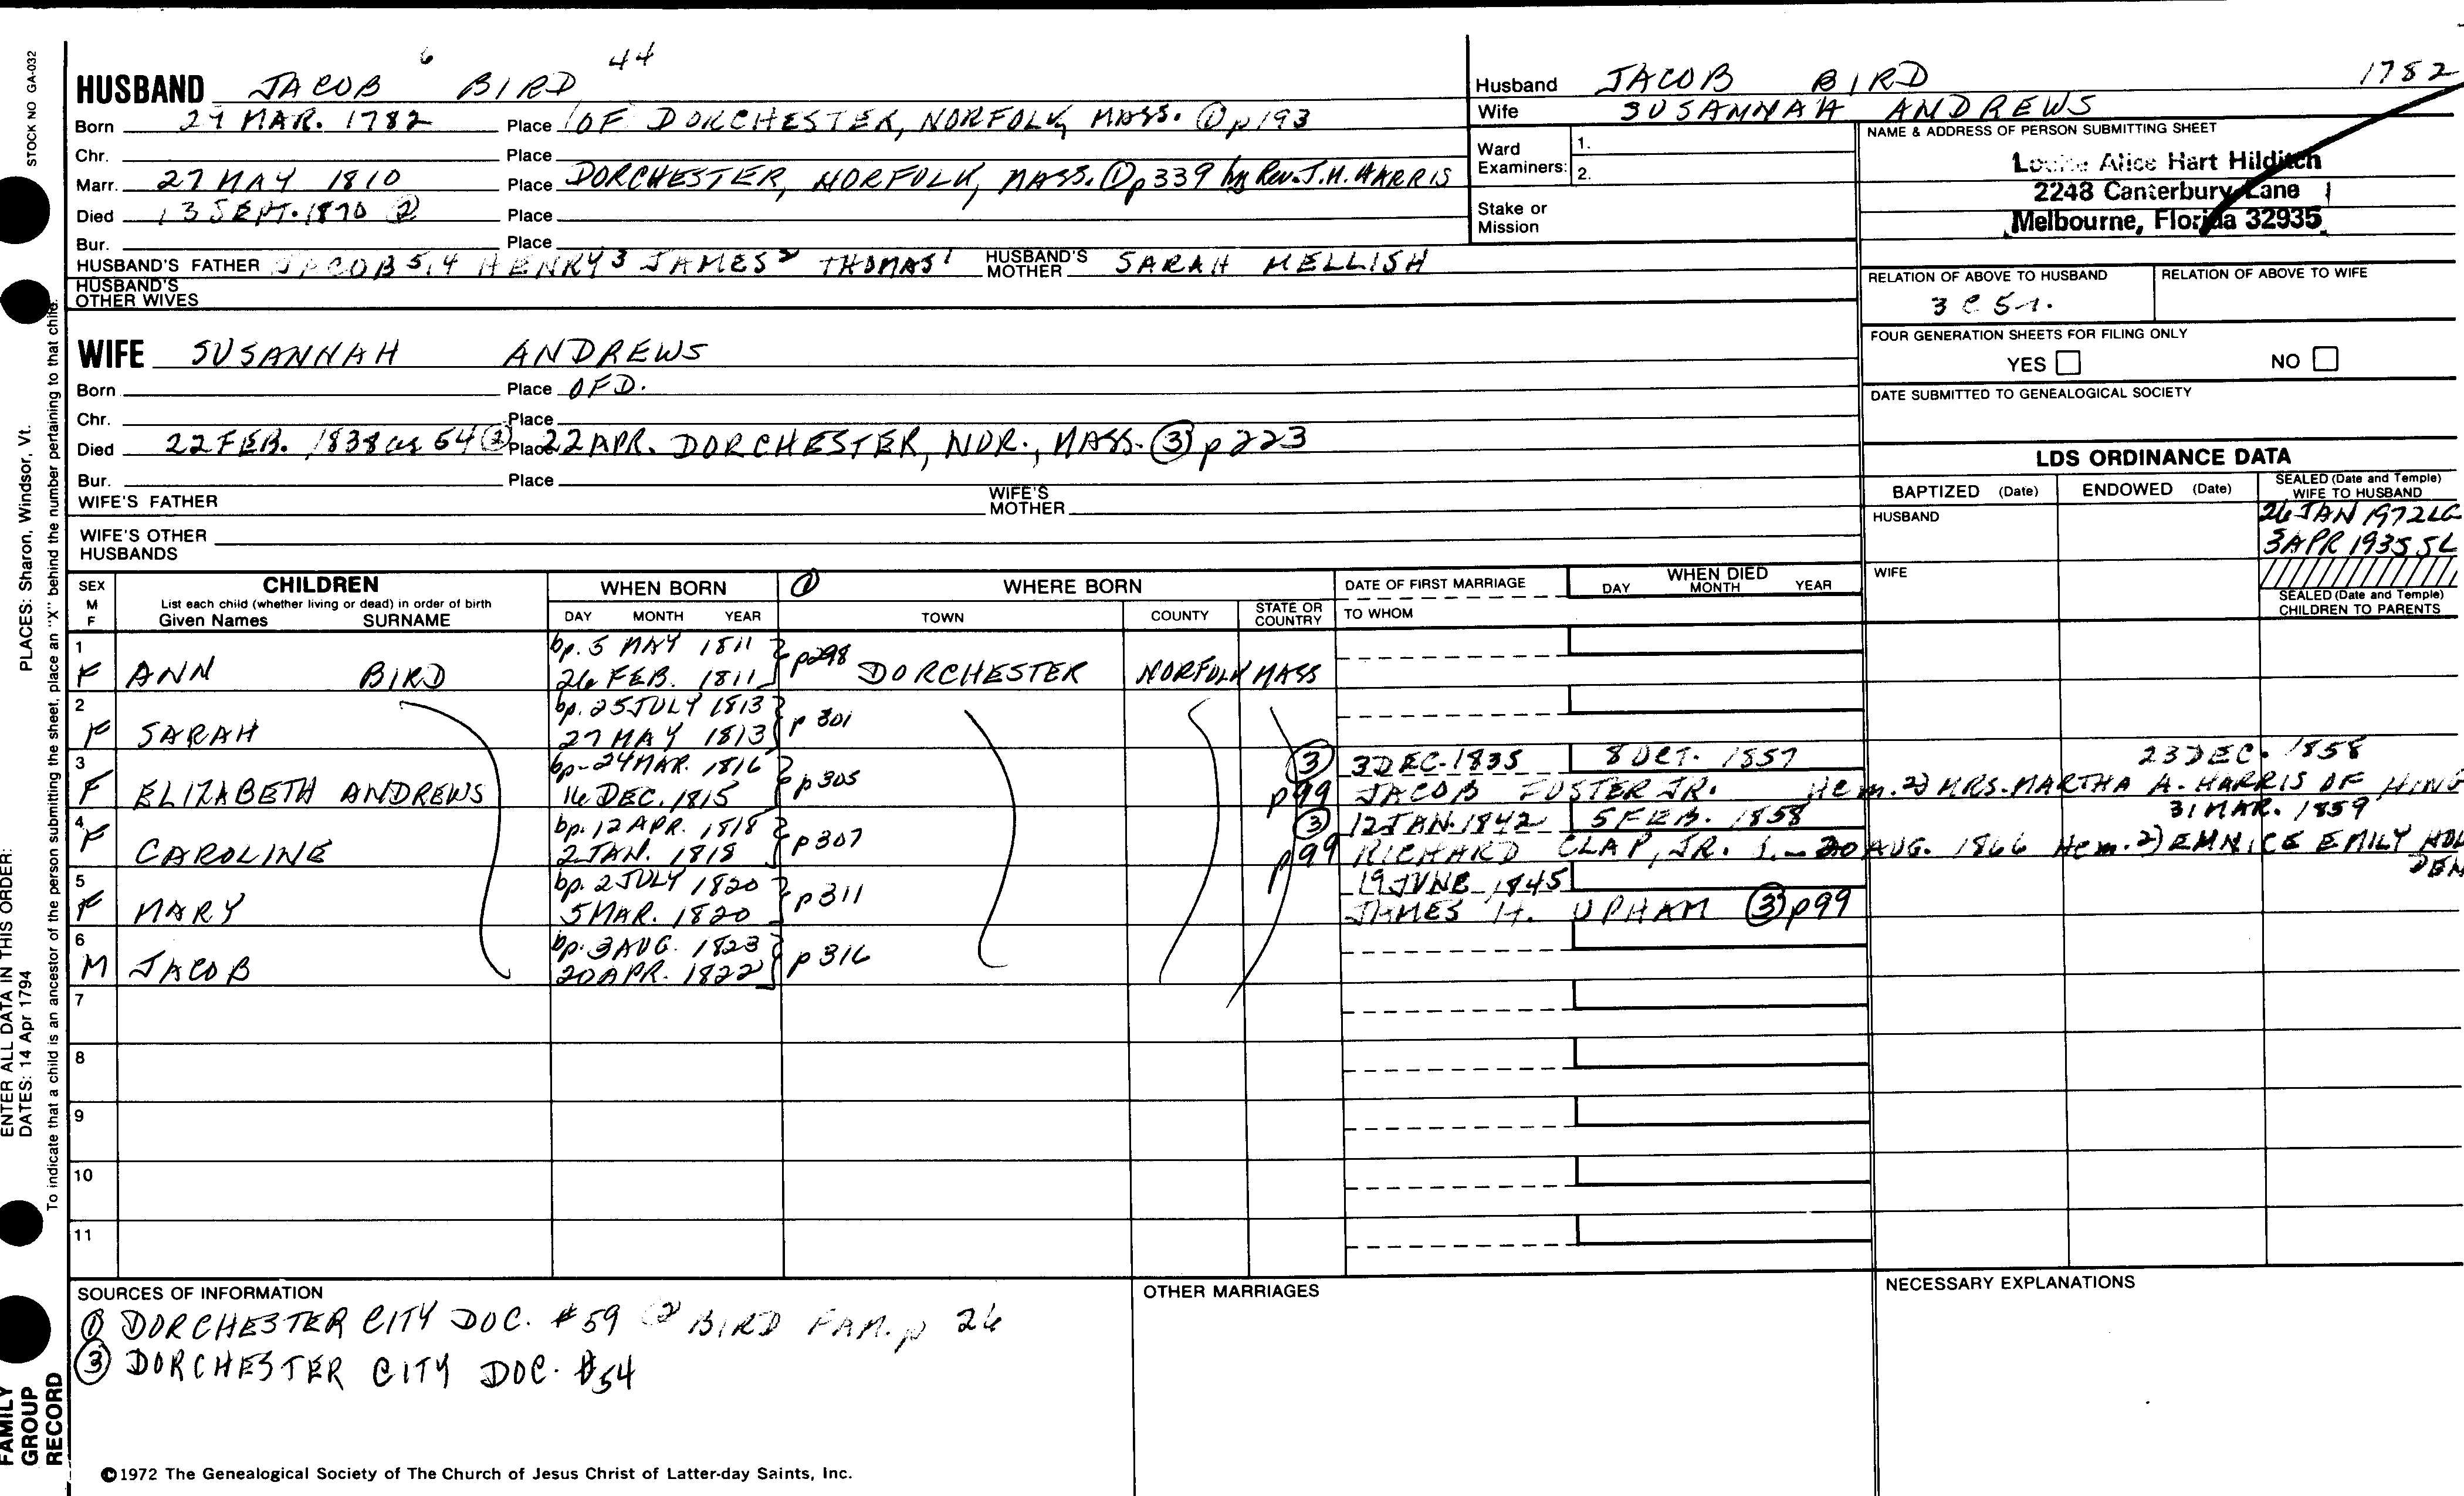 6 44
HUSBAND JACOB BIRD
Born MAR. 1782 Place OF DORCHESTER, NORFOLK, MASS. ① p193
Chr. Place
Marr. 27 MAY 1810 Place DORCHESTER, NORFOLK, MASS. ① p339 by Rev. T.M. HARRIS
Died 13 SEPT. 1870 ② Place
Bur. Place
HUSBAND'S FATHER JACOB 5,4 HENRY 3 JAMES 2 THOMAS 1 HUSBAND'S MOTHER SARAH MELLISH
HUSBAND'S OTHER WIVES
Husband JACOB BIRD 1782
Wife SUSANNAH ANDREWS
Ward Examiners: 1.
2.
Stake or Mission
NAME & ADDRESS OF PERSON SUBMITTING SHEET
Louise Alice Hart Hilditch
2248 Canterbury Lane
Melbourne, Florida 32935
RELATION OF ABOVE TO HUSBAND RELATION OF ABOVE TO WIFE
3 C 5 r.
FOUR GENERATION SHEETS FOR FILING ONLY
YES NO
DATE SUBMITTED TO GENEALOGICAL SOCIETY
WIFE SUSANNAH ANDREWS
Born Place OF D.
Chr. Place
Died 22 FEB. 1838 ae 54 ② Place 22 APR. DORCHESTER, NOR., MASS. ③ p223
Bur. Place
WIFE'S FATHER WIFE'S MOTHER
WIFE'S OTHER HUSBANDS
LDS ORDINANCE DATA
BAPTIZED (Date) ENDOWED (Date) SEALED (Date and Temple) WIFE TO HUSBAND
HUSBAND 26 JAN 1972 LG
3 APR 1935 SL
WIFE
SEALED (Date and Temple) CHILDREN TO PARENTS
SEX M F CHILDREN WHEN BORN ① WHERE BORN DATE OF FIRST MARRIAGE WHEN DIED
List each child (whether living or dead) in order of birth
Given Names SURNAME DAY MONTH YEAR TOWN COUNTY STATE OR COUNTRY TO WHOM DAY MONTH YEAR
1 bp. 5 MAY 1811 p298
F ANN BIRD 26 FEB. 1811 DORCHESTER NORFOLK MASS
2 bp. 25 JULY 1813 p 301
F SARAH 27 MAY 1813
3 bp. 24 MAR. 1816 p 305 ③ 3 DEC. 1835 8 OCT. 1857 23 DEC. 1858
F ELIZABETH ANDREWS 16 DEC. 1815 p99 JACOB FOSTER JR. He m. 2) MRS. MARTHA A. HARRIS OF HING
4 bp. 12 APR. 1818 p307 ③ 12 JAN. 1842 5 FEB. 1858 31 MAR. 1859
F CAROLINE 2 JAN. 1818 p99 RICHARD CLAP, JR. 20 AUG. 1866 He m. 2) EMILY
5 bp. 2 JULY 1820 p311 19 JUNE 1845
F MARY 5 MAR. 1820 JAMES H. UPHAM ③ p99
6 bp. 3 AUG. 1823 p 316
M JACOB 20 APR. 1822
7
8
9
10
11
SOURCES OF INFORMATION
① DORCHESTER CITY DOC. #59 ② BIRD FAM. p 26
③ DORCHESTER CITY DOC. #54
OTHER MARRIAGES
NECESSARY EXPLANATIONS
©1972 The Genealogical Society of The Church of Jesus Christ of Latter-day Saints, Inc.
STOCK NO GA-032
PLACES: Sharon, Windsor, Vt.
ENTER ALL DATA IN THIS ORDER:
DATES: 14 Apr 1794
To indicate that a child is an ancestor of the person submitting the sheet, place an "X" behind the number pertaining to that child.
FAMILY GROUP RECORD